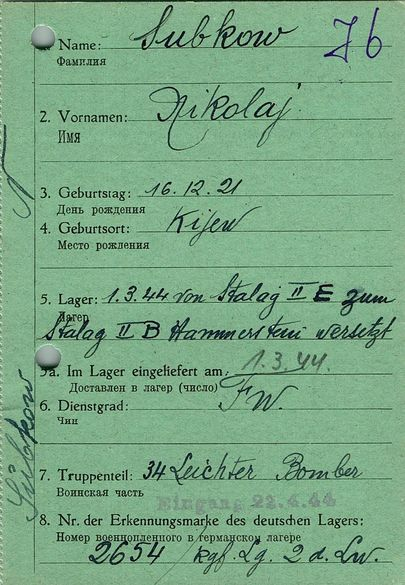 1. Name: Subkow J6
Фамилия
2. Vornamen: Nikolaj
Имя
3. Geburtstag: 16.12.21
День рождения
4. Geburtsort: Kijew
Место рождения
5. Lager: 1.3.44 von Stalag II E zum
Лагер
Stalag II B Hammerstein versetzt
5a. Im Lager eingeliefert am: 1.3.44.
Доставлен в лагер (число)
6. Dienstgrad: FW.
Чин
7. Truppenteil: 34 Leichter Bomber
Воинская часть
Eingang 22.4.44
8. Nr. der Erkennungsmarke des deutschen Lagers:
Номер военнопленного в германском лагере
2654 / Kgf. Lg. 2 d. Lw.
Subkow N